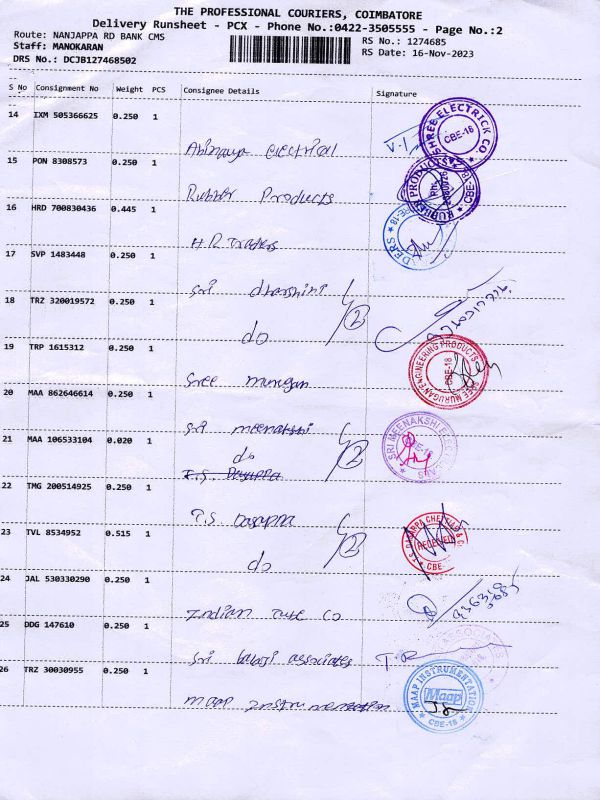 THE PROFESSIONAL COURIERS, COIMBATORE
Delivery Runsheet - PCX - Phone No.:0422-3505555 - Page No.:2
Route: NANJAPPA RD BANK CMS
RS No.: 1274685
Staff: MANOKARAN
RS Date: 16-Nov-2023
DRS No.: DCJB127468502
S No Consignment No Weight PCS Consignee Details Signature
14 IXM 505366625 0.250 1
Abinaya Electrical
SHREE ELECTRICK CO CBE-18
15 PON 8308573 0.250 1
Rubber Products
RUBBER PRODUCTS CBE-
16 HRD 700830436 0.445 1
H R Traders
DERS
17 SVP 1483448 0.250 1
Sri Dharshini
2
18 TRZ 320019572 0.250 1
do
19 TRP 1615312 0.250 1
Sree murugan
SREE MURUGAN ENGINEERING PRODUCTS CBE-18
20 MAA 862646614 0.250 1
Sri meenakshi
SRI MEENAKSHI CBE-18
21 MAA 106533104 0.020 1
do
2
T.S. Dasappa
22 TMG 200514925 0.250 1
T.S. Dasappa
RECEIVED CBE
23 TVL 8534952 0.515 1
do
2
24 JAL 530330290 0.250 1
Indian tube Co
25 DDG 147610 0.250 1
Sri balaji associates
26 TRZ 30030955 0.250 1
maap Instrumentation
MAAP INSTRUMENTATION Maap CBE-18